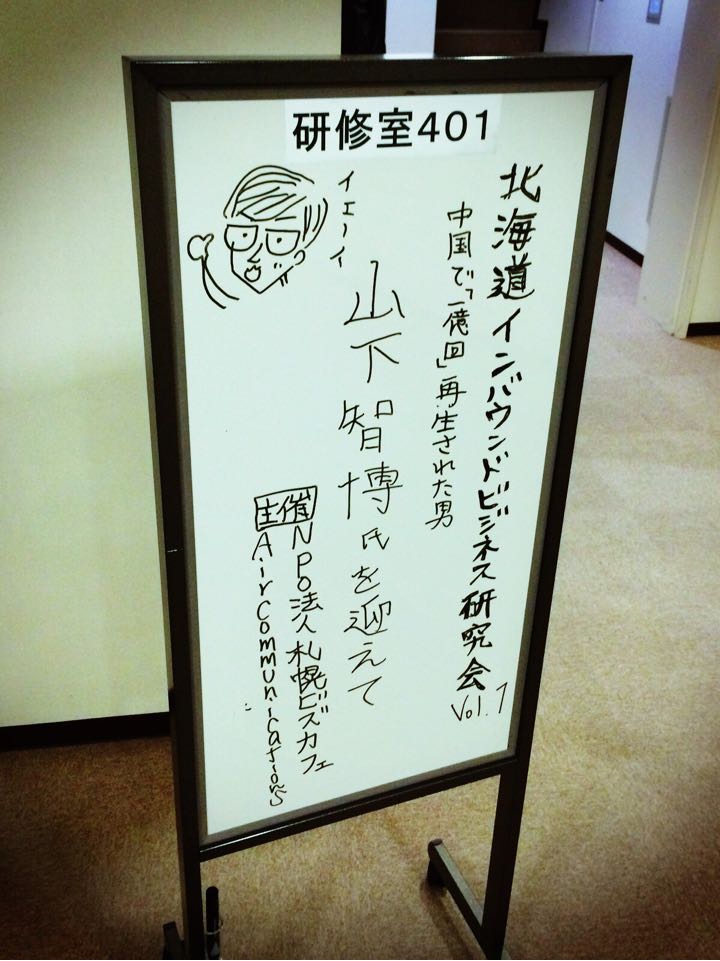 研修室401
北海道インバウンドビジネス研究会 Vol.1
中国で「一億回」再生された男
イエーイ
山下智博氏を迎えて
主催
NPO法人札幌ビズカフェ
Air Communications